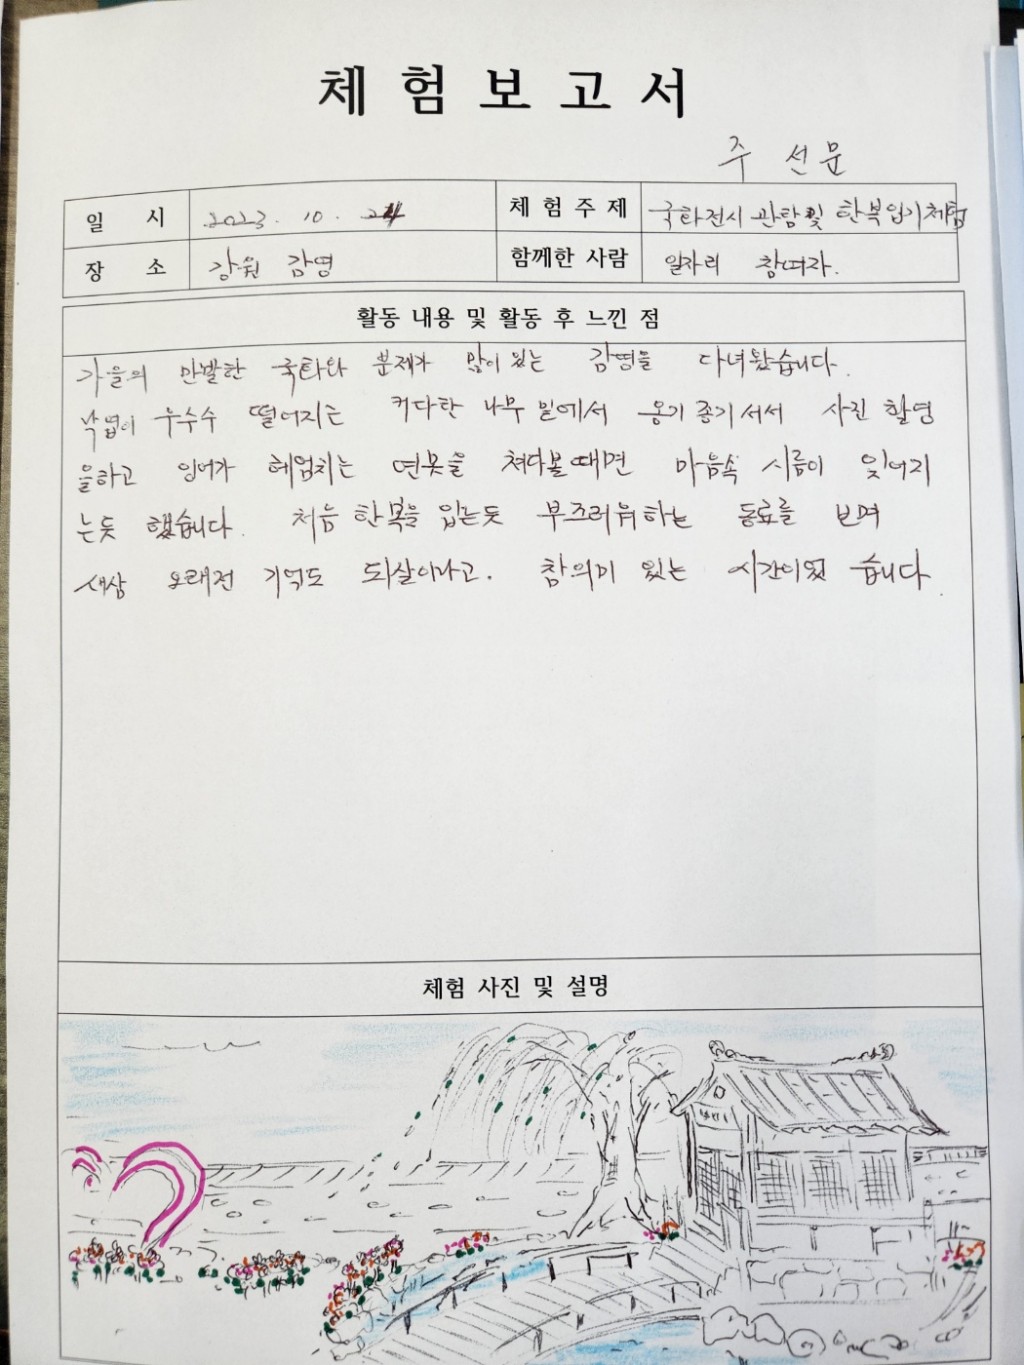 체험보고서
주 선문
일 시 2023. 10. 24 체험주제 국화전시 관람 및 한복입기체험
장 소 강원 감영 함께한 사람 일자리 참여자.
활동 내용 및 활동 후 느낀 점
가을의 만발한 국화와 분재가 많이 있는 감영을 다녀왔습니다.
낙엽이 우수수 떨어지는 커다란 나무 밑에서 옹기종기 서서 사진 촬영
을하고 잉어가 헤엄치는 연못을 쳐다볼때면 마음속 시름이 잊어지
는듯 했습니다. 처음 한복을 입는듯 부즈러워하는 동료를 보며
새삼 오래전 기억도 되살아나고. 참의미 있는 시간이었습니다.
체험 사진 및 설명